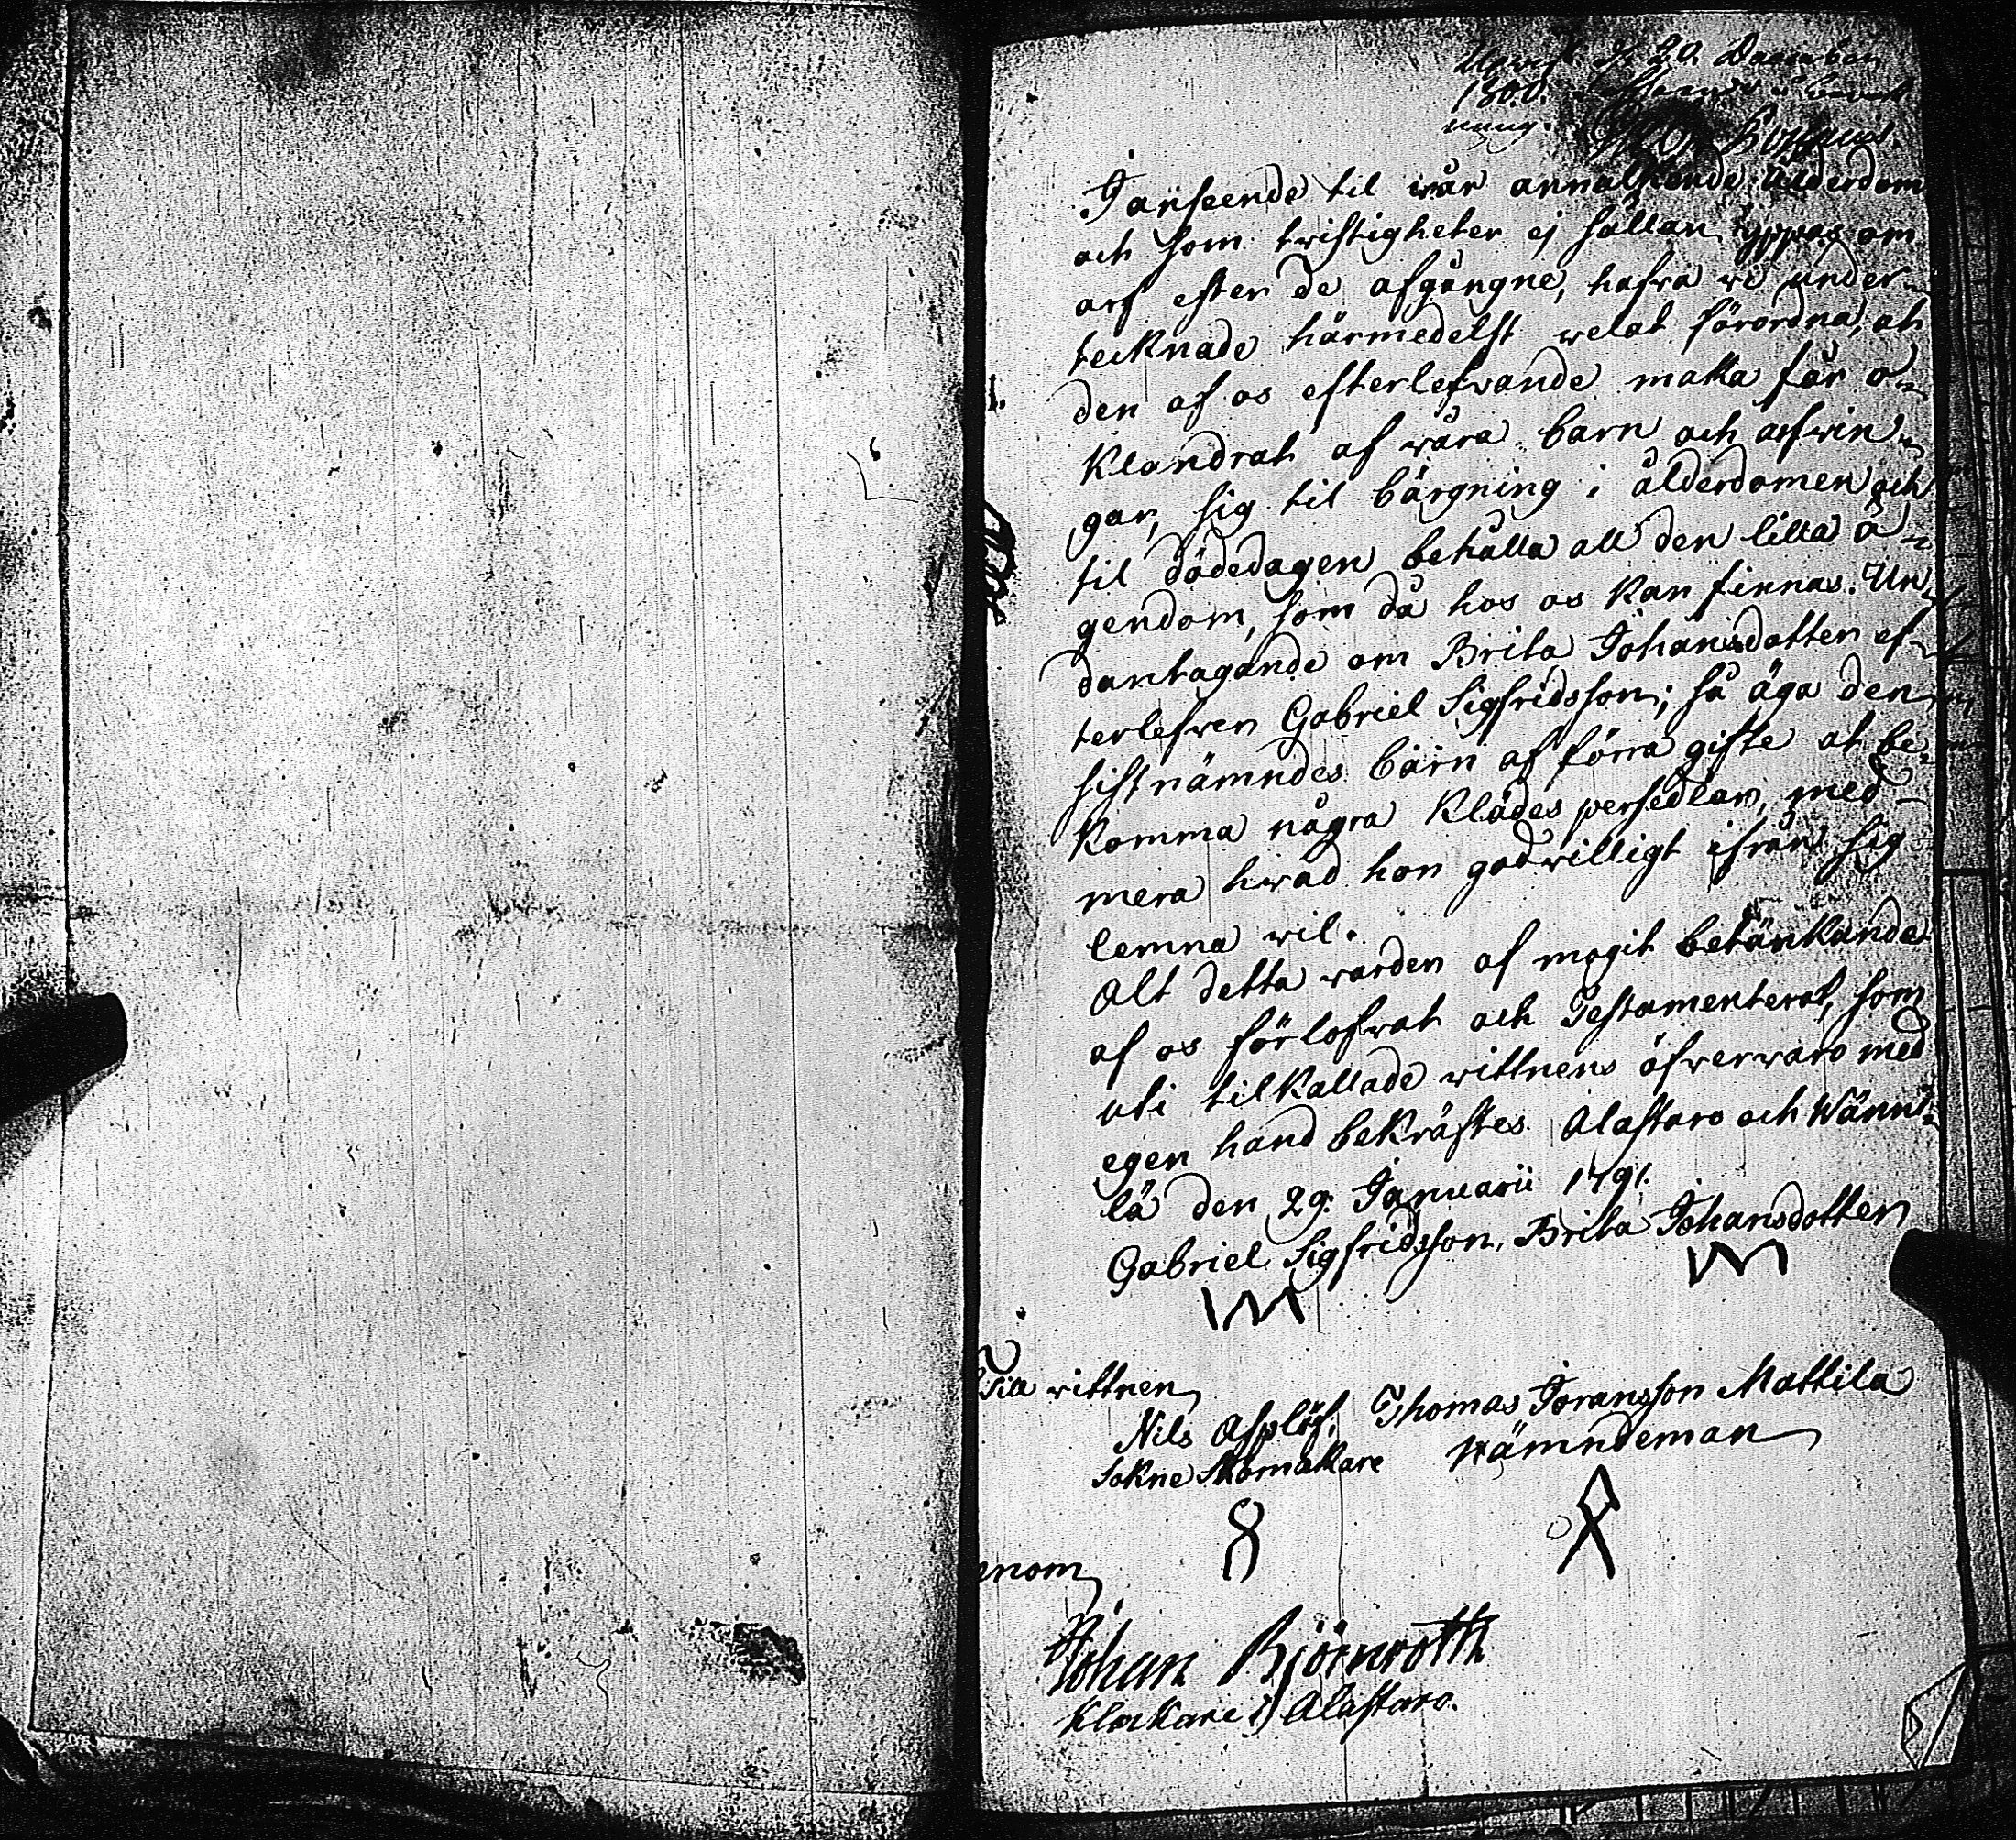 d. 20 December
1800.
I anseende til wår annalkende ålderdom
och som twistigheter ej sällan yppas om
arf efter de afgångne, hafwa wi under-
tecknade härmedelst welat förordna, at
den af os efterlefwande maka får o-
klandrat af wåra barn och arfwin-
gar, sig til bärgning i ålderdomen och
til dödedagen behålla all den lilla ä-
gendom, som då hos os kan finnas. Un-
dantagande om Brita Johansdotter ef-
terlefwer Gabriel Sigfridsson; så äga den
sistnämndes barn af förra gifte at be-
komma några klädes persedlar, med-
mera hwad hon godwilligt ifrån sig
lemna wil.
Alt detta warder af mogit betänkande
af os förlofwat och Testamenterat, som
uti tilkallade wittnens öfwerwaro med
egen hand bekräftes Alastaro och Wänni-
lä den 29. Januarii 1791.
Gabriel Sigfridsson, Brita Johansdotter
Till wittnen
Nils Asplöf, Thomas Jöransson Mattila
Sokne Skomakare Nämndeman
enom
Johan Björnroth
Klockare i Alastaro.